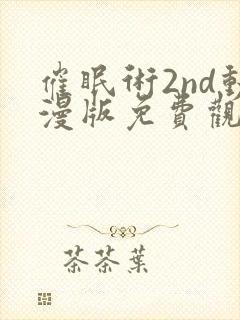 催眠術2nd動
漫版免費觀
茶茶葉